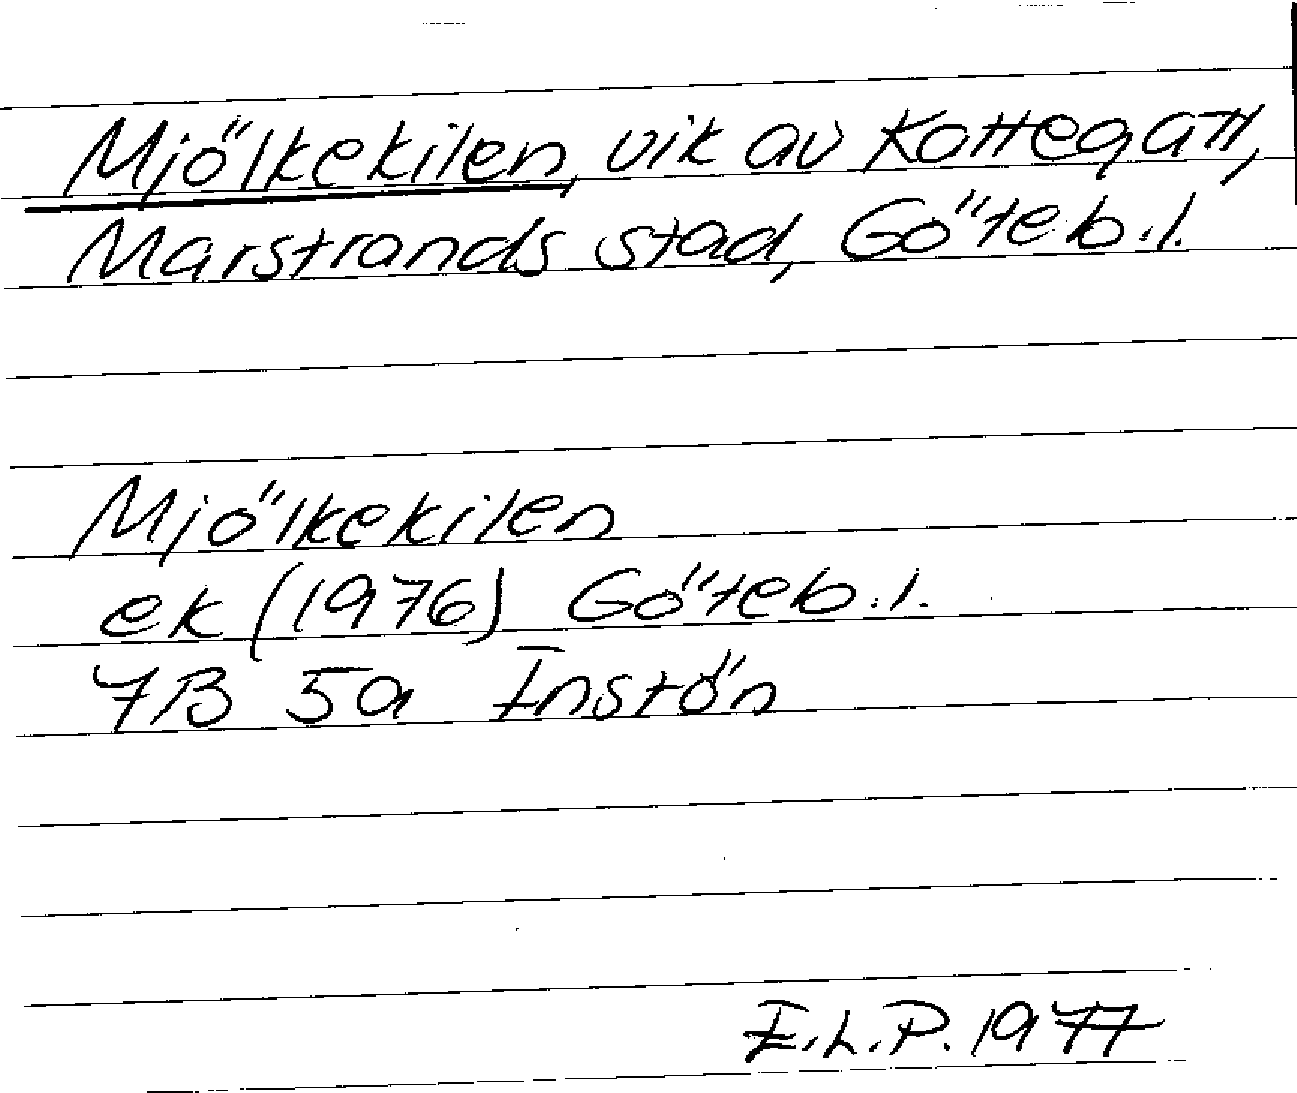 Mjölkekilen, vik av Kattegatt,
Marstrands stad, Göteb.l.
Mjölkekilen
ek (1976) Göteb.l.
7B 5a Instön
I.L.P. 1977